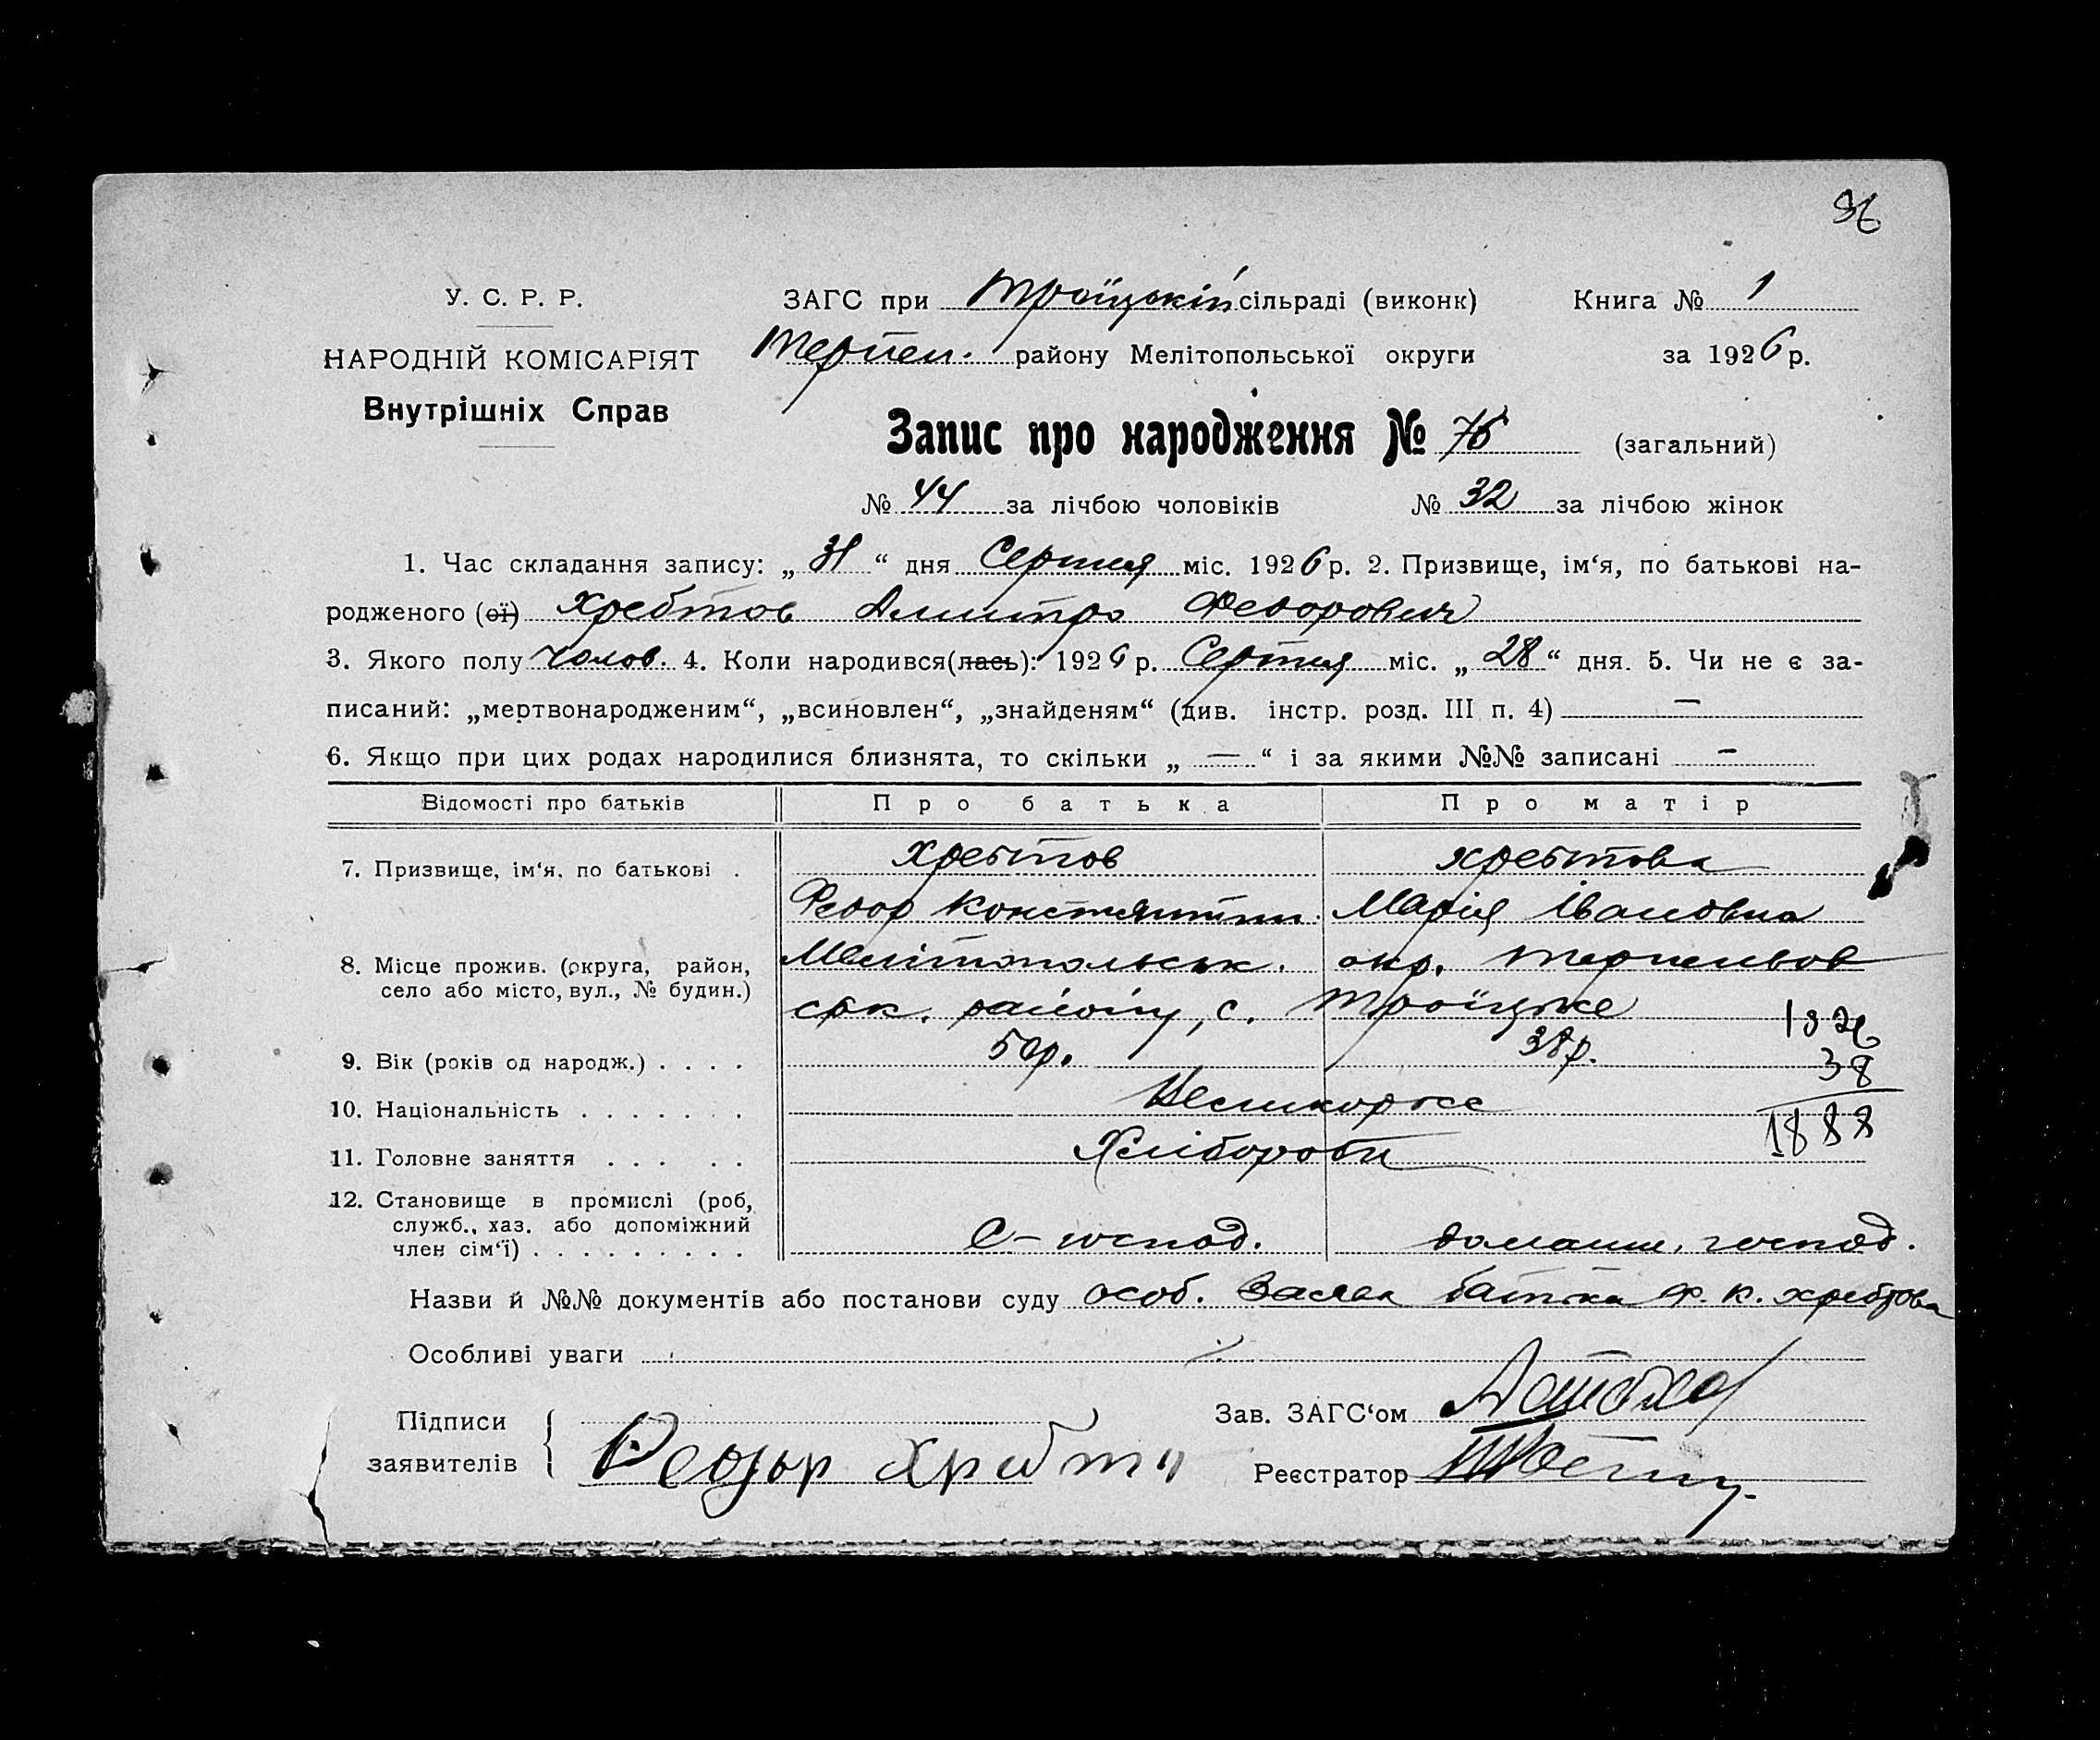 96
У. С. Р. Р.
НАРОДНІЙ КОМІСАРІЯТ
Внутрішніх Справ
ЗАГС при Троїцькій сільраді (виконк)
Терпен. району Мелітопольської округи
Книга № 1
за 1926 р.
Запис про народження № 76 (загальний)
№ 44 за лічбою чоловіків № 32 за лічбою жінок
1. Час складання запису: „31“ дня Серпня міс. 1926 р. 2. Призвище, ім‘я, по батькові на-
родженого (ої) Хребтов Дмитро Федорович
3. Якого полу чолов. 4. Коли народився(лась): 1926 р. Серпня міс. „28“ дня. 5. Чи не є за-
писаний: „мертвонародженим“, „всиновлен“, „знайденям“ (див. інстр. розд. III п. 4) —
6. Якщо при цих родах народилися близнята, то скільки „ — “ і за якими №№ записані —
Відомості про батьків Про батька Про матір
7. Призвище, ім‘я, по батькові . Хребтов Хребтова
Федор Констянтин. Марія Івановна
8. Місце прожив. (округа, район, Мелітопольськ. окр. Терпеньов
село або місто, вул., № будин.) ськ. району, с. Троїцьке
1926
9. Вік (років од народж.) . . . . 50р. 38р.
38
10. Національність . . . . . . . Великорос
1888
11. Головне заняття . . . . . Хлібороби
12. Становище в промислі (роб,
служб., хаз. або допоміжний
член сім‘ї) . . . . . . . . . С-господ. домашн. господ.
Назви й №№ документів або постанови суду особ. Заява батька Ф. К. Хребтова
Особливі уваги
Підписи
заявителів
Федор Хребто
Зав. ЗАГС‘ом
Реєстратор